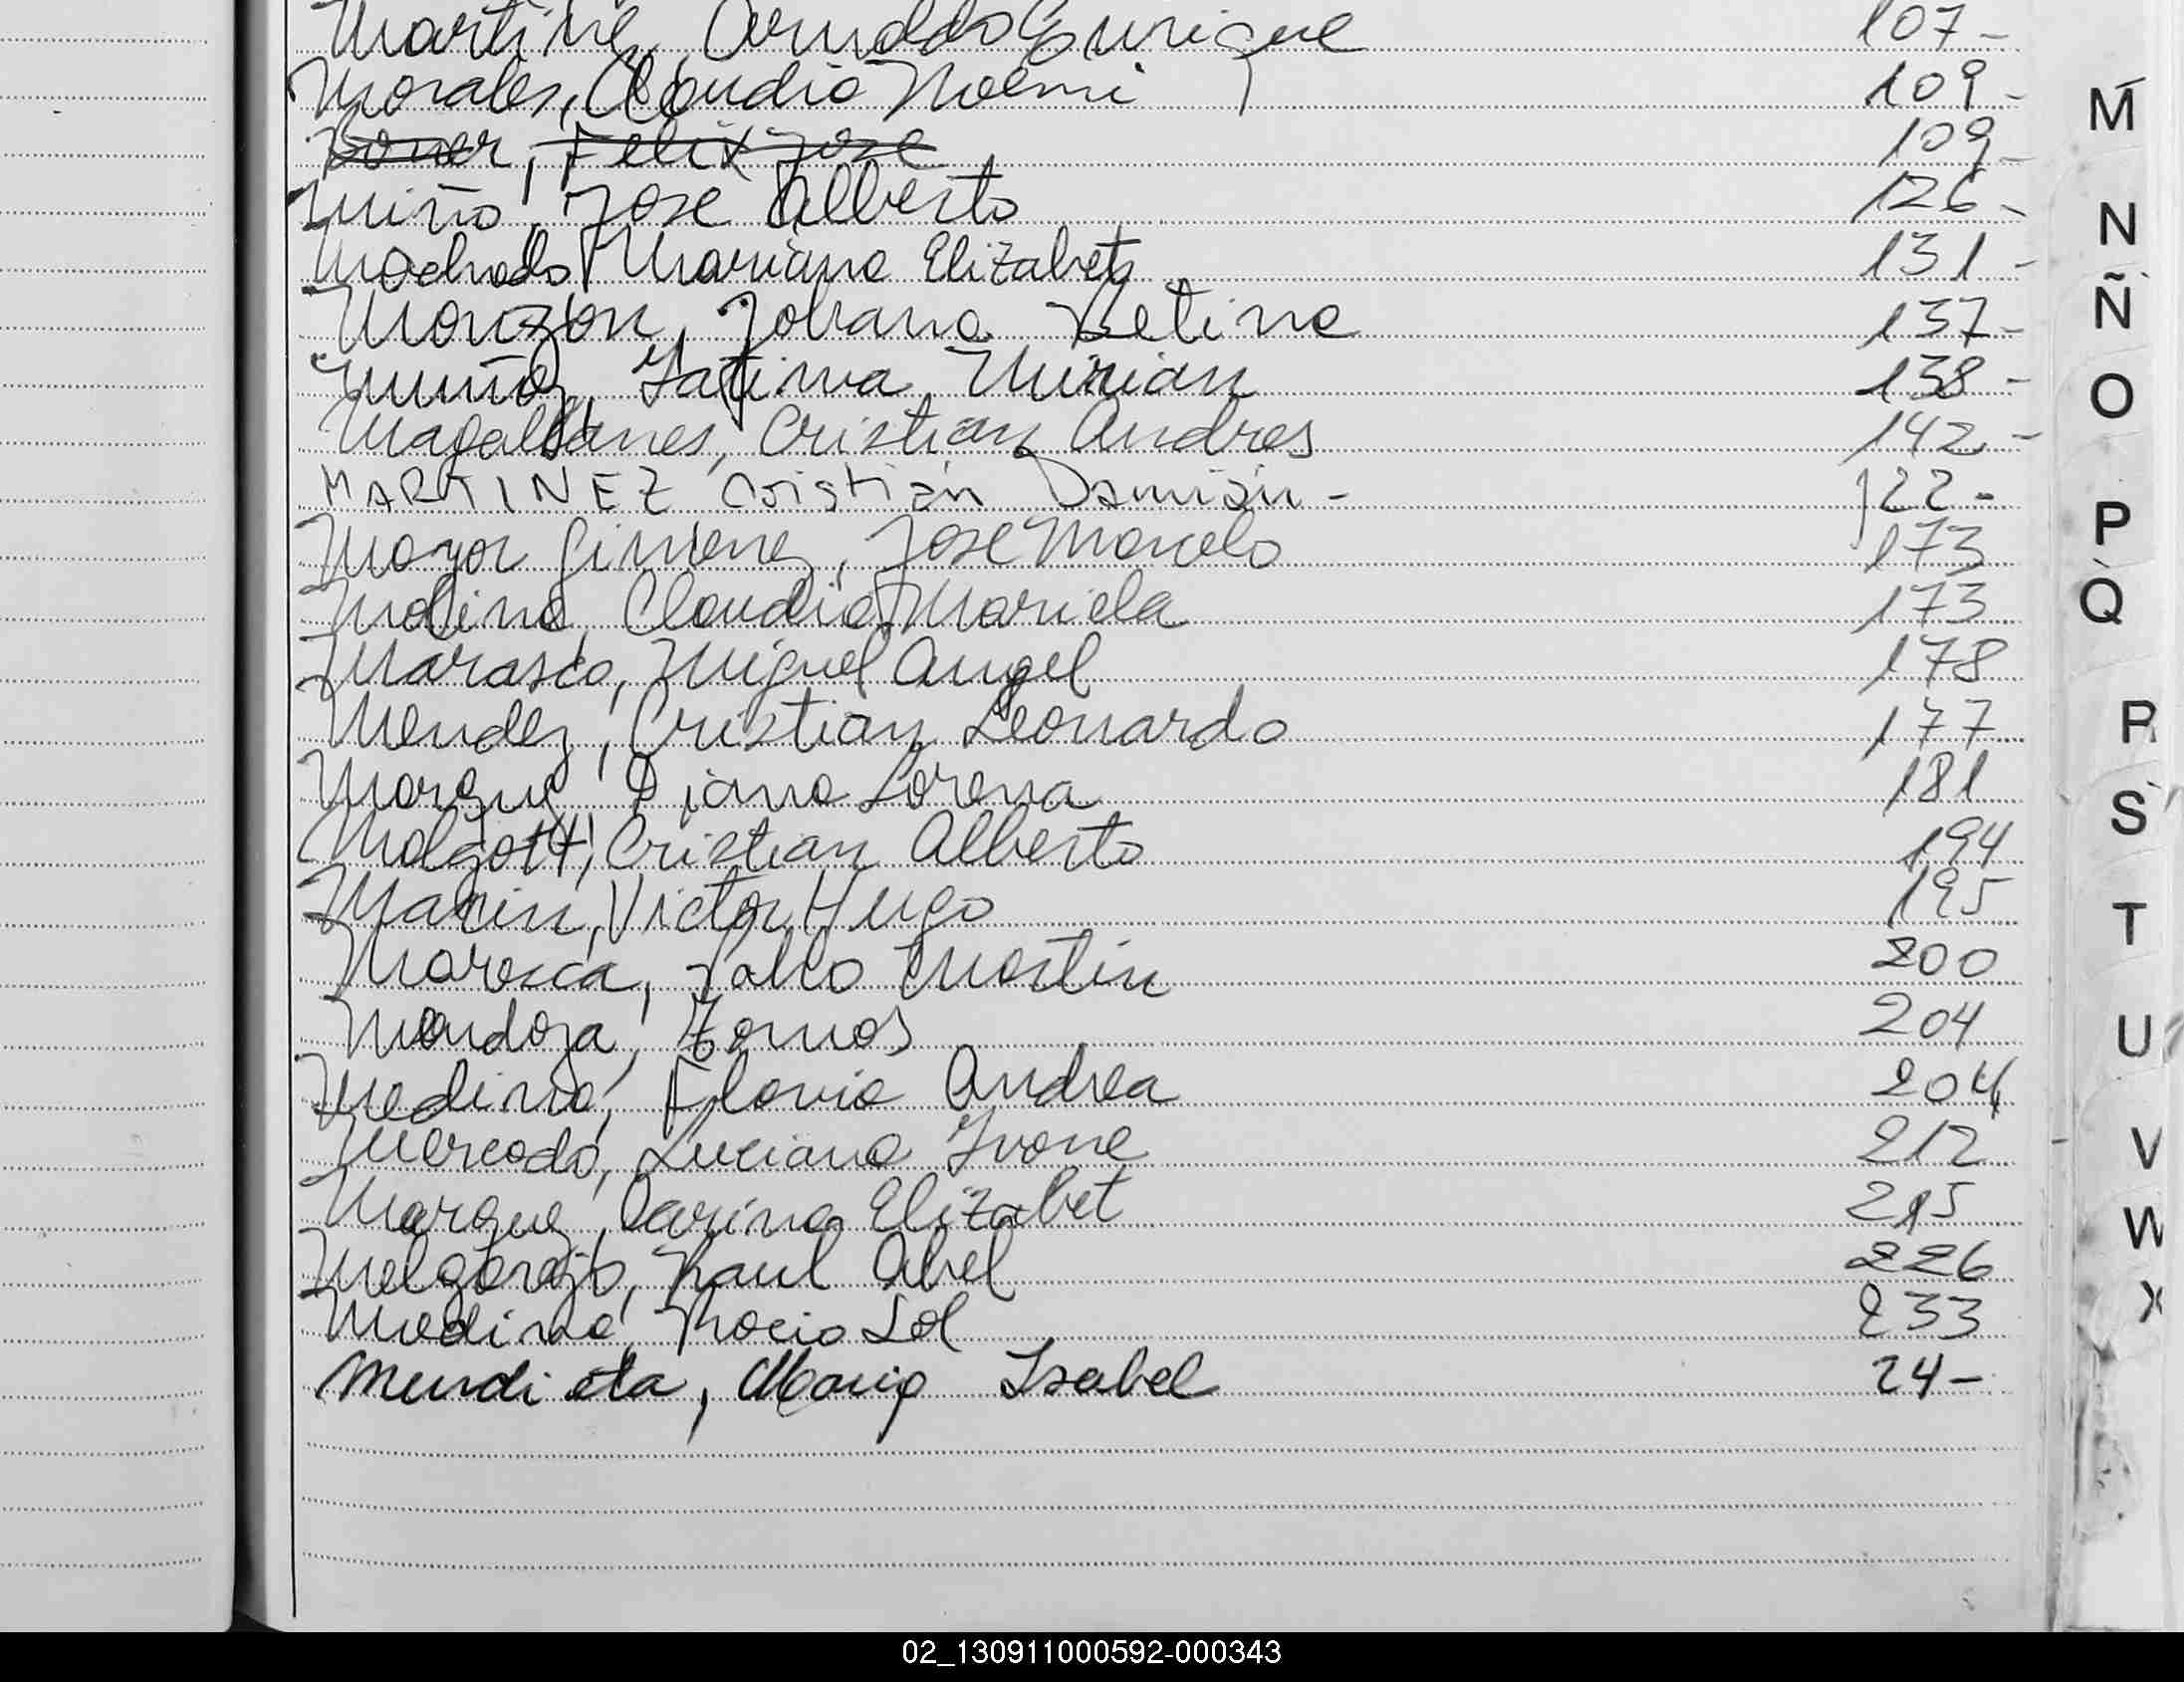 Martinez, Arnoldo Enrique 107-
Morales, Claudia Noemi 109-
Boner, Felix Jose 109-
Miño, Jose Alberto 126-
Machado, Mariana Elizabeth 131-
Monzon, Johana Betina 137-
Muñoz, Fatima Mirian 138-
Magallanes, Cristian Andres 142-
MARTINEZ Cristián Damián- 122-
Mayor Gimenez, Jose Marcelo 173
Molina, Claudia Mariela 173
Marasco, Miguel Angel 178
Mendez, Cristian Leonardo 177
Marquez Diana Lorena 181
Cristian Alberto 194
Marin, Victor Hugo 195
Maresca, Pablo Martin 200
Mendoza, Tomas 204
Medina, Flavia Andrea 204
Mercado, Luciana Ivone 212
Marquez, Carina Elizabet 215
Melgarejo, Raul Abel 226
Medina, Rocio Sol 233
Mendieta, Maria Isabel 24-
M
N
Ñ
O
P
Q
R
S
T
U
V
W
X
02_130911000592-000343